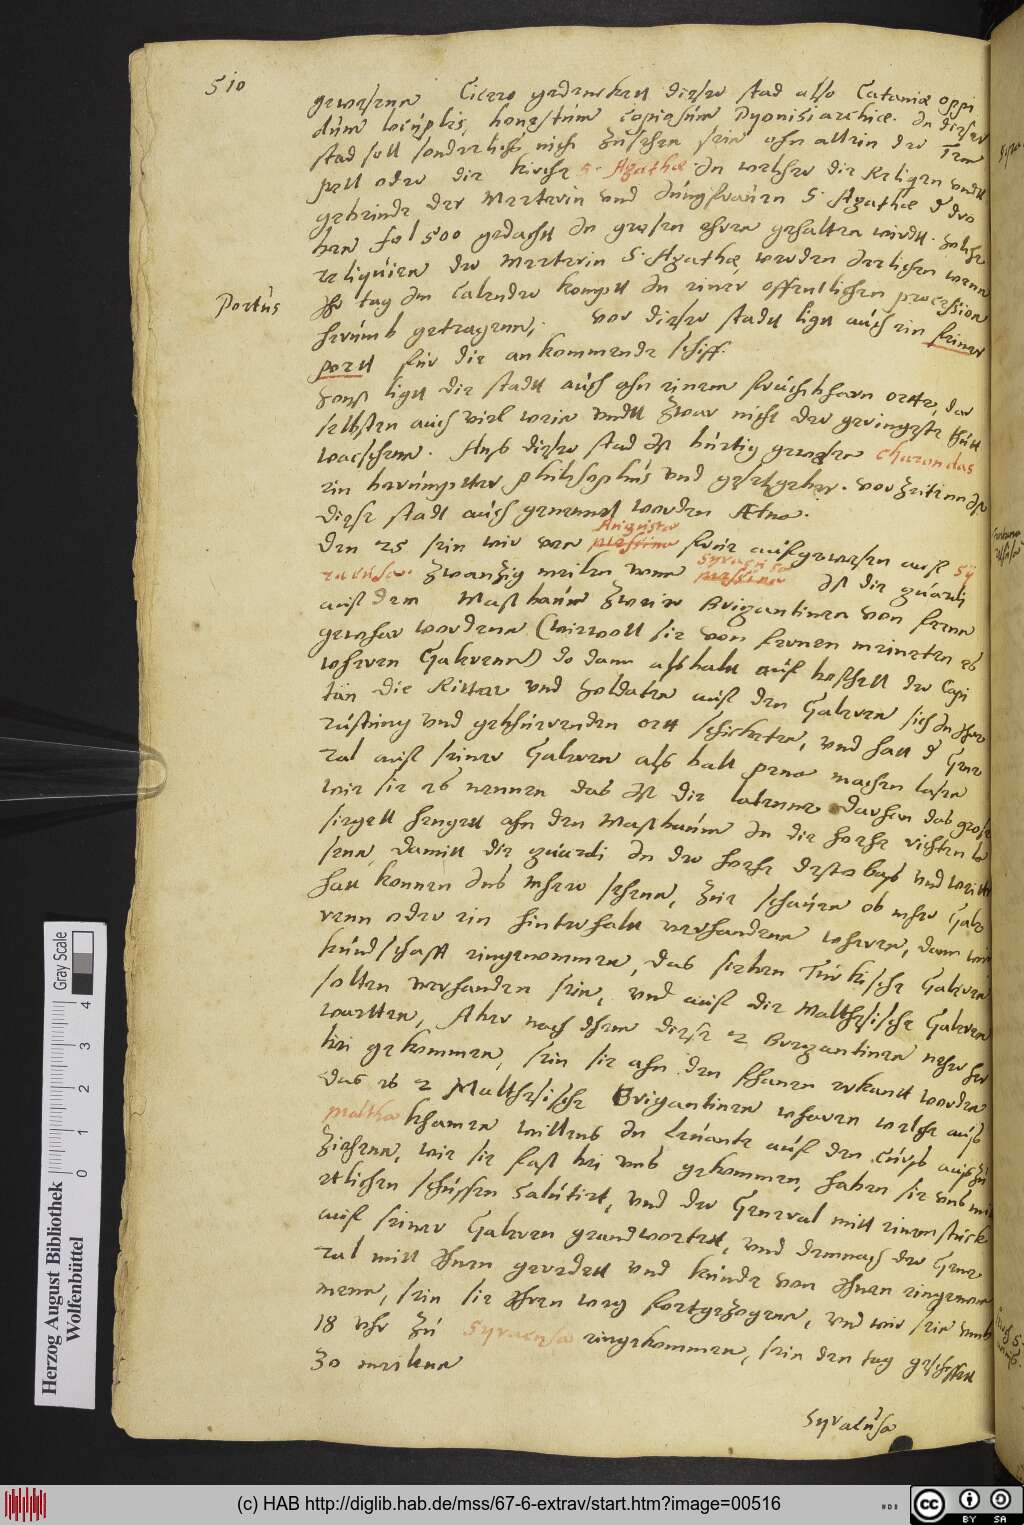 510
gewesenn Cicero gedencket dieser stad also Cataniæ oppi
dum locuplis, honestum copiosum Dyonisiarchiæ. In dieser
stad soll sonderlichs nichs zusehen sein ohn allein der Tem
pell oder die kirche S. Agathæ In welcher die Religen undt
gebeinde der Marterin und Jungfrauen S. Agathæ d dro
ben fol 500 gedacht In grosen ehren gehalten wirdt. solche
reliquien der Marterin S. Agathæ, werden Jerlichen wenn
Ihr tag Im Calender kompt In einer offentlichen procession
herumb getragenn;. Vor dieser stadt ligt auch ein feiner
Portus
port für die ankommende schiff.
Sonst ligt die stadt auch ahn einem fruchtbarn orte, dar
selbsten auch viel wein undt zwar nicht der geringste thut
wachsenn. Aus dieser stad Ist bürtig gewesen Charondas
ein berümptter philosophus und gesetzgeber. vor zeitenn Ist
diese stadt auch genennet worden Ætna.
Den 25 sein wir von Augusta früe aufgewesen auf Sy
racusa. zwanzig meilen vonn Syracusa Ist die guardi
auß dem Mastbaum zweier Brigantinen von ferne
gewahr wordenn (wiewoll sie von fernen meineten es
wheren Galeren) do dann alsbalt auf befehll der Capi
tän die Ritter und Soldaten auß den Galeren sich In Ihre
rüstung und gebürenden ort schickten, und hatt d Gene
ral auß seiner Galeren als balt peno machen lasen
wie sie es nennen das Ist die latenne daran das grose
siegell henget ahn den Mastbaum In die hoehe richten la
senn, damitt die guardi In der hoehe desto bas und weitt
hatt konnen Ins mheer sehenn, zue schauen ob mher Gale
renn oder ein hinterhalt verhandenn wheren, dann wir
kundschafft eingenommen, das sieben Türkische Galeren
solten verhanden sein, und auf die Malthesische Galeren
wartten, Aber nach Ihem diese 2 Bregantinen neher her
bei gekommen, sein sie ahn den fhanen erkant worden
das es 2 Malthesische Brigantinen wharen welche auß
Maltha khamen willens In Levante auf den Curss auszu
ziehenn, wie sie fast bei uns gekommen, haben sie uns mit
etlichen schüssen Salutirt, und der General mitt einem stuck
auß seiner Galeren geandwortet, und demnach der Gene
ral mitt Ihnen geredett und kunde von Ihnen eingenom
menn, sein sie Ihren weg fortgezogenn, und wir sein umb
18 uhr zu Syracusa eingekommen, sein den tag geschifftt
30 meilenn
Syracusa
Herzog August Bibliothek
Wolfenbüttel
Gray Scale
0 1 2 3 4
(c) HAB http://diglib.hab.de/mss/67-6-extrav/start.htm?image=00516
HAB
cc BY SA